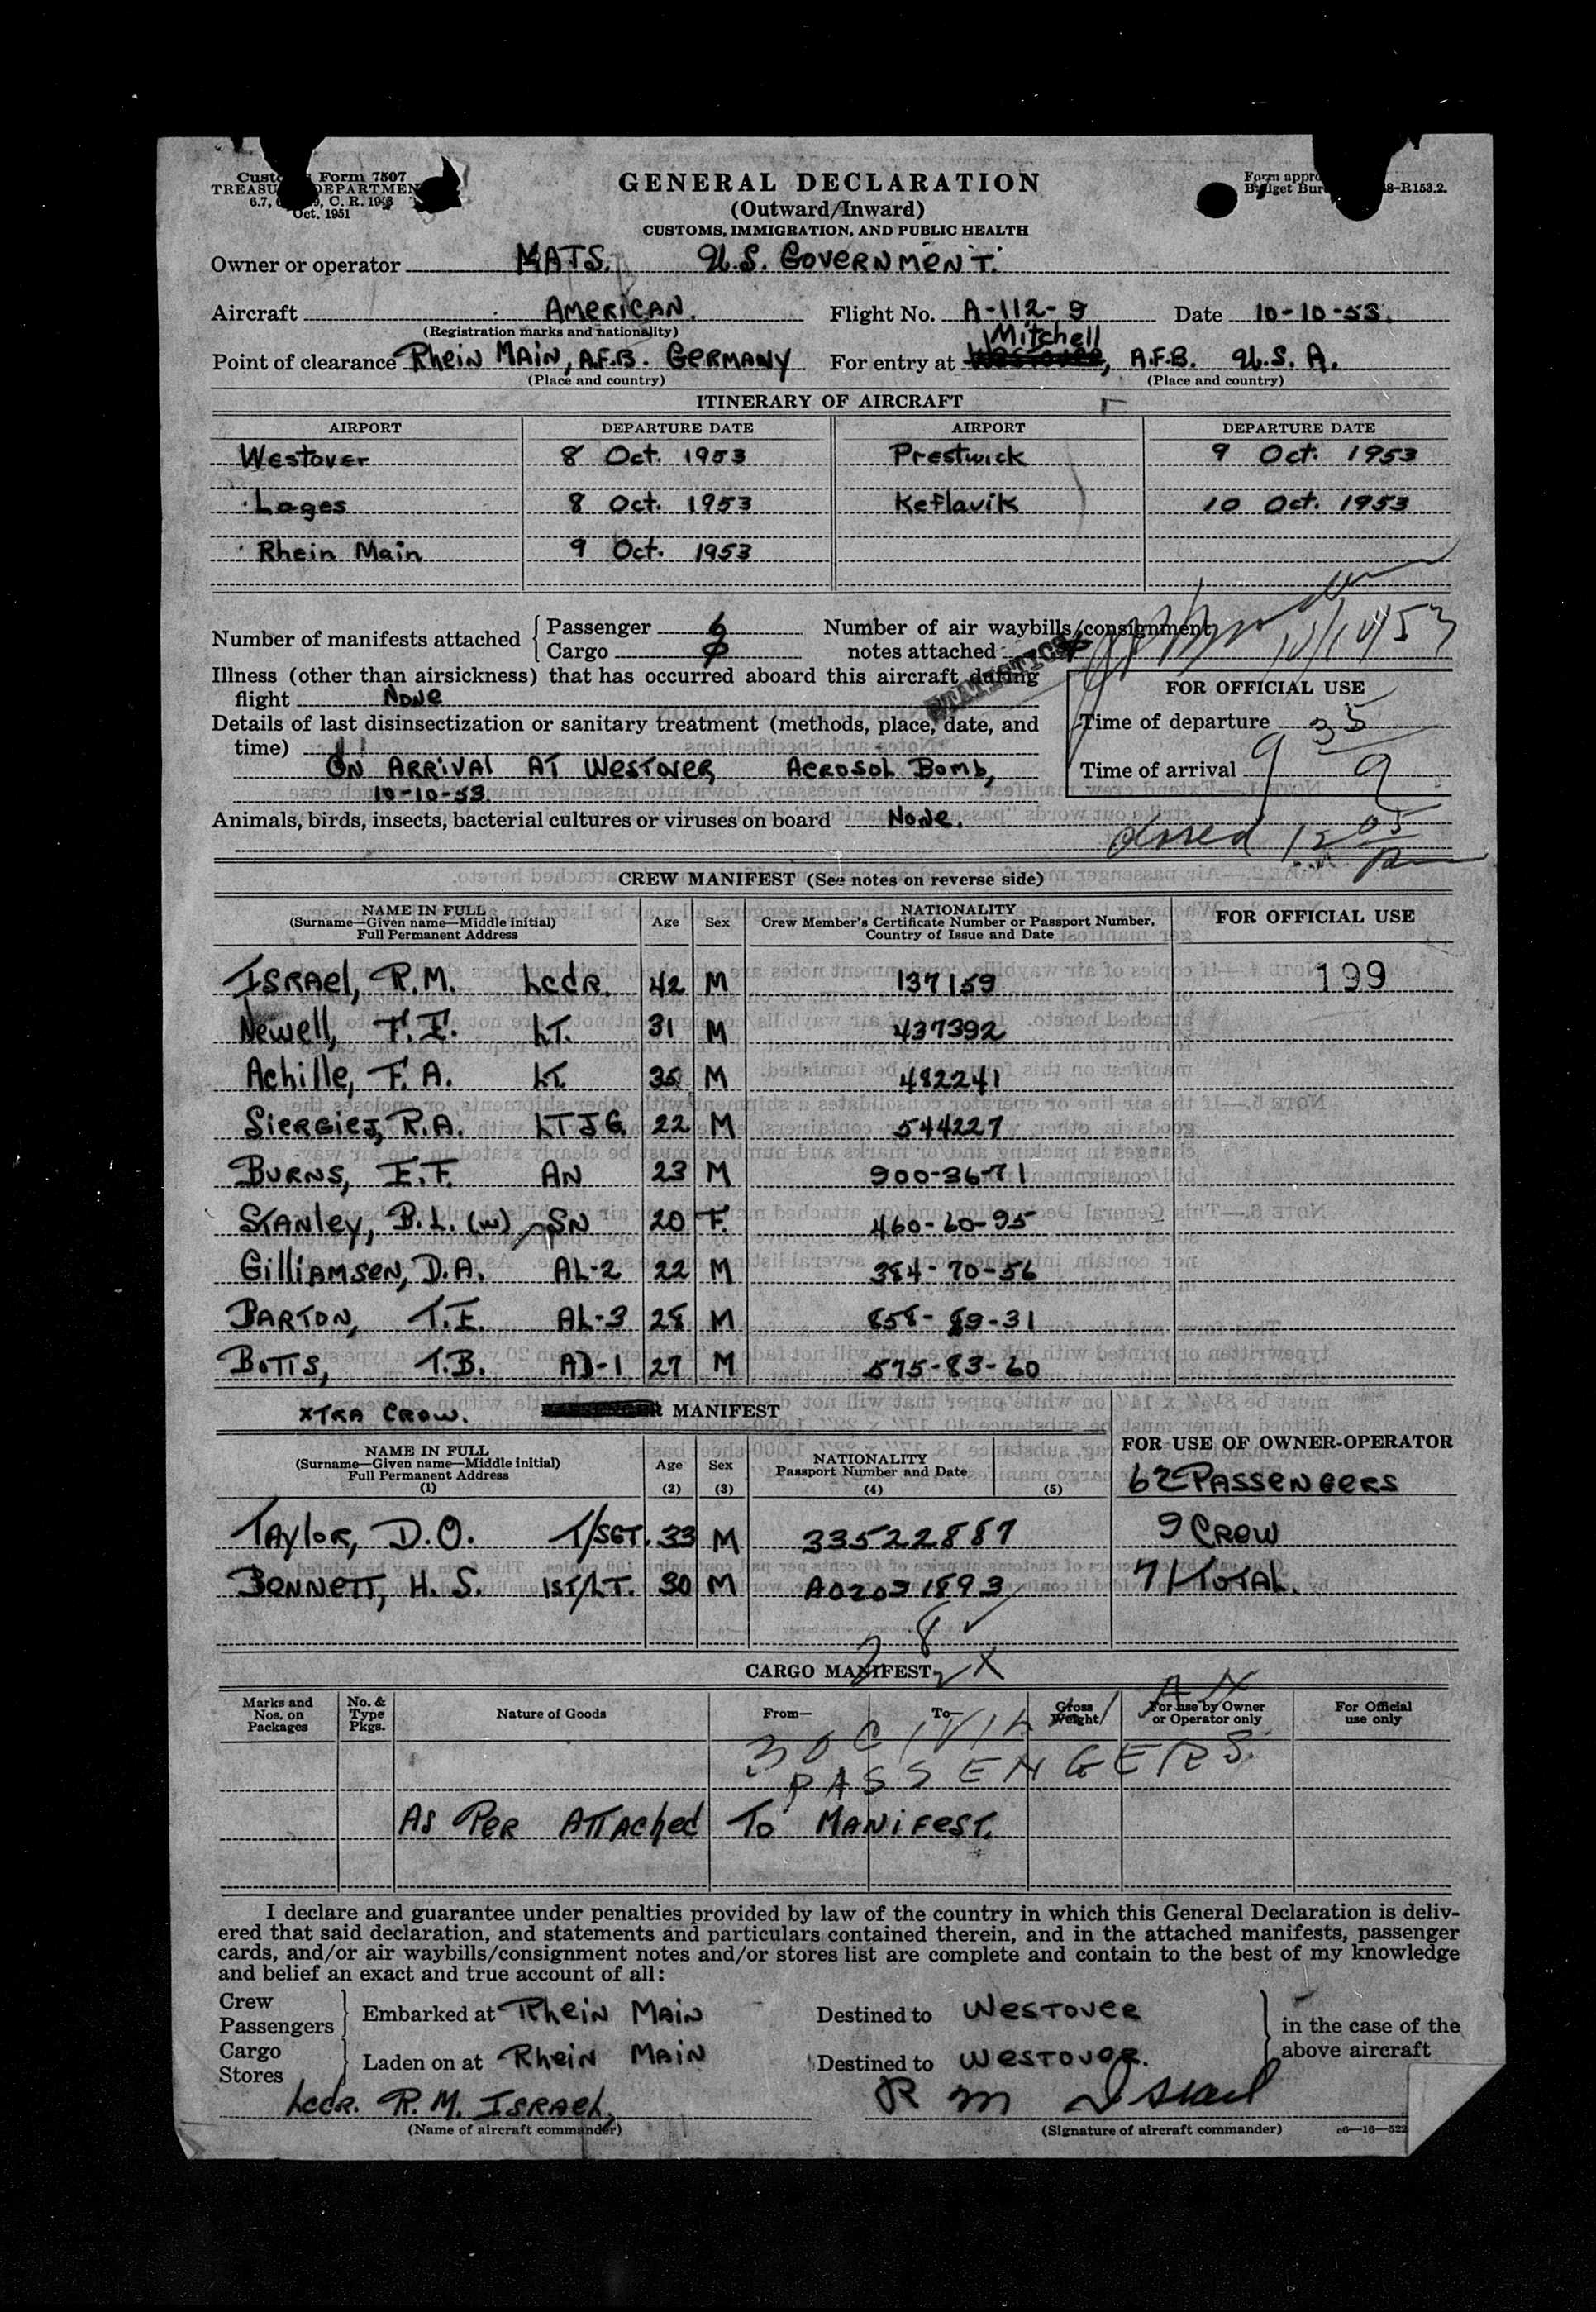 Customs Form 7507
TREASURY DEPARTMENT
Oct. 1951
Form appro
Budget Bur 8-R153.2.
GENERAL DECLARATION
(Outward/Inward)
CUSTOMS, IMMIGRATION, AND PUBLIC HEALTH
Owner or operator MATS. U.S. GOVERNMENT.
Aircraft AMERICAN. Flight No. A-112-9 Date 10-10-53.
(Registration marks and nationality)
Mitchell
Point of clearance Rhein MAIN, A.F.B. GERMANY For entry at Westover, A.F.B. U.S.A.
(Place and country) (Place and country)
ITINERARY OF AIRCRAFT
AIRPORT DEPARTURE DATE AIRPORT DEPARTURE DATE
Westover 8 Oct. 1953 Prestwick 9 Oct. 1953
Lages 8 Oct. 1953 Keflavik 10 Oct. 1953
Rhein Main 9 Oct. 1953
Number of manifests attached Passenger 6 Number of air waybills/consignment
Cargo notes attached
STATISTICS
Illness (other than airsickness) that has occurred aboard this aircraft during
flight None
Details of last disinsectization or sanitary treatment (methods, place, date, and
time)
ON ARRIVAL AT WESTOVER AEROSOL BOMB,
10-10-53.
Animals, birds, insects, bacterial cultures or viruses on board None.
FOR OFFICIAL USE
Time of departure 35
Time of arrival 9 9
closed 12 05
CREW MANIFEST (See notes on reverse side)
NAME IN FULL
(Surname—Given name—Middle initial)
Full Permanent Address
Age Sex
NATIONALITY
Crew Member's Certificate Number or Passport Number,
Country of Issue and Date
FOR OFFICIAL USE
ISRAEL, R.M. LCDR. 42 M 137159 199
Newell, F.E. LT. 31 M 437392
Achille, F.A. LT. 35 M 482241
SIERGIEJ, R.A. LTJG. 22 M 544227
BURNS, E.F. AN 23 M 900-36-71
STANLEY, B.L. (W) SN 20 F. 460-60-95
GILLIAMSEN, D.A. AL-2 22 M 384-70-56
BARTON, T.E. AL-3 28 M 858-89-31
BOTTS, T.B. AD-1 27 M 575-83-60
XTRA CROW. MANIFEST
NAME IN FULL
(Surname—Given name—Middle initial)
Full Permanent Address
(1)
Age
(2)
Sex
(3)
NATIONALITY
Passport Number and Date
(4) (5)
FOR USE OF OWNER-OPERATOR
62 PASSENGERS
TAYLOR, D.O. T/SGT. 33 M 33522887 9 CROW
BENNETT, H.S. 1ST/LT. 30 M AO2021893 71 TOTAL.
CARGO MANIFEST
Marks and Nos. on Packages No. & Type Pkgs. Nature of Goods From— To— Gross Weight For use by Owner or Operator only For Official use only
30 CIVILIAN
PASSENGERS.
AS PER ATTACHED TO MANIFEST.
I declare and guarantee under penalties provided by law of the country in which this General Declaration is deliv-
ered that said declaration, and statements and particulars contained therein, and in the attached manifests, passenger
cards, and/or air waybills/consignment notes and/or stores list are complete and contain to the best of my knowledge
and belief an exact and true account of all:
Crew
Passengers Embarked at Rhein MAIN Destined to WESTOVER in the case of the
Cargo
Stores Laden on at Rhein MAIN Destined to WESTOVER. above aircraft
Lcdr. R.M. ISRAEL, R M Israel
(Name of aircraft commander) (Signature of aircraft commander)